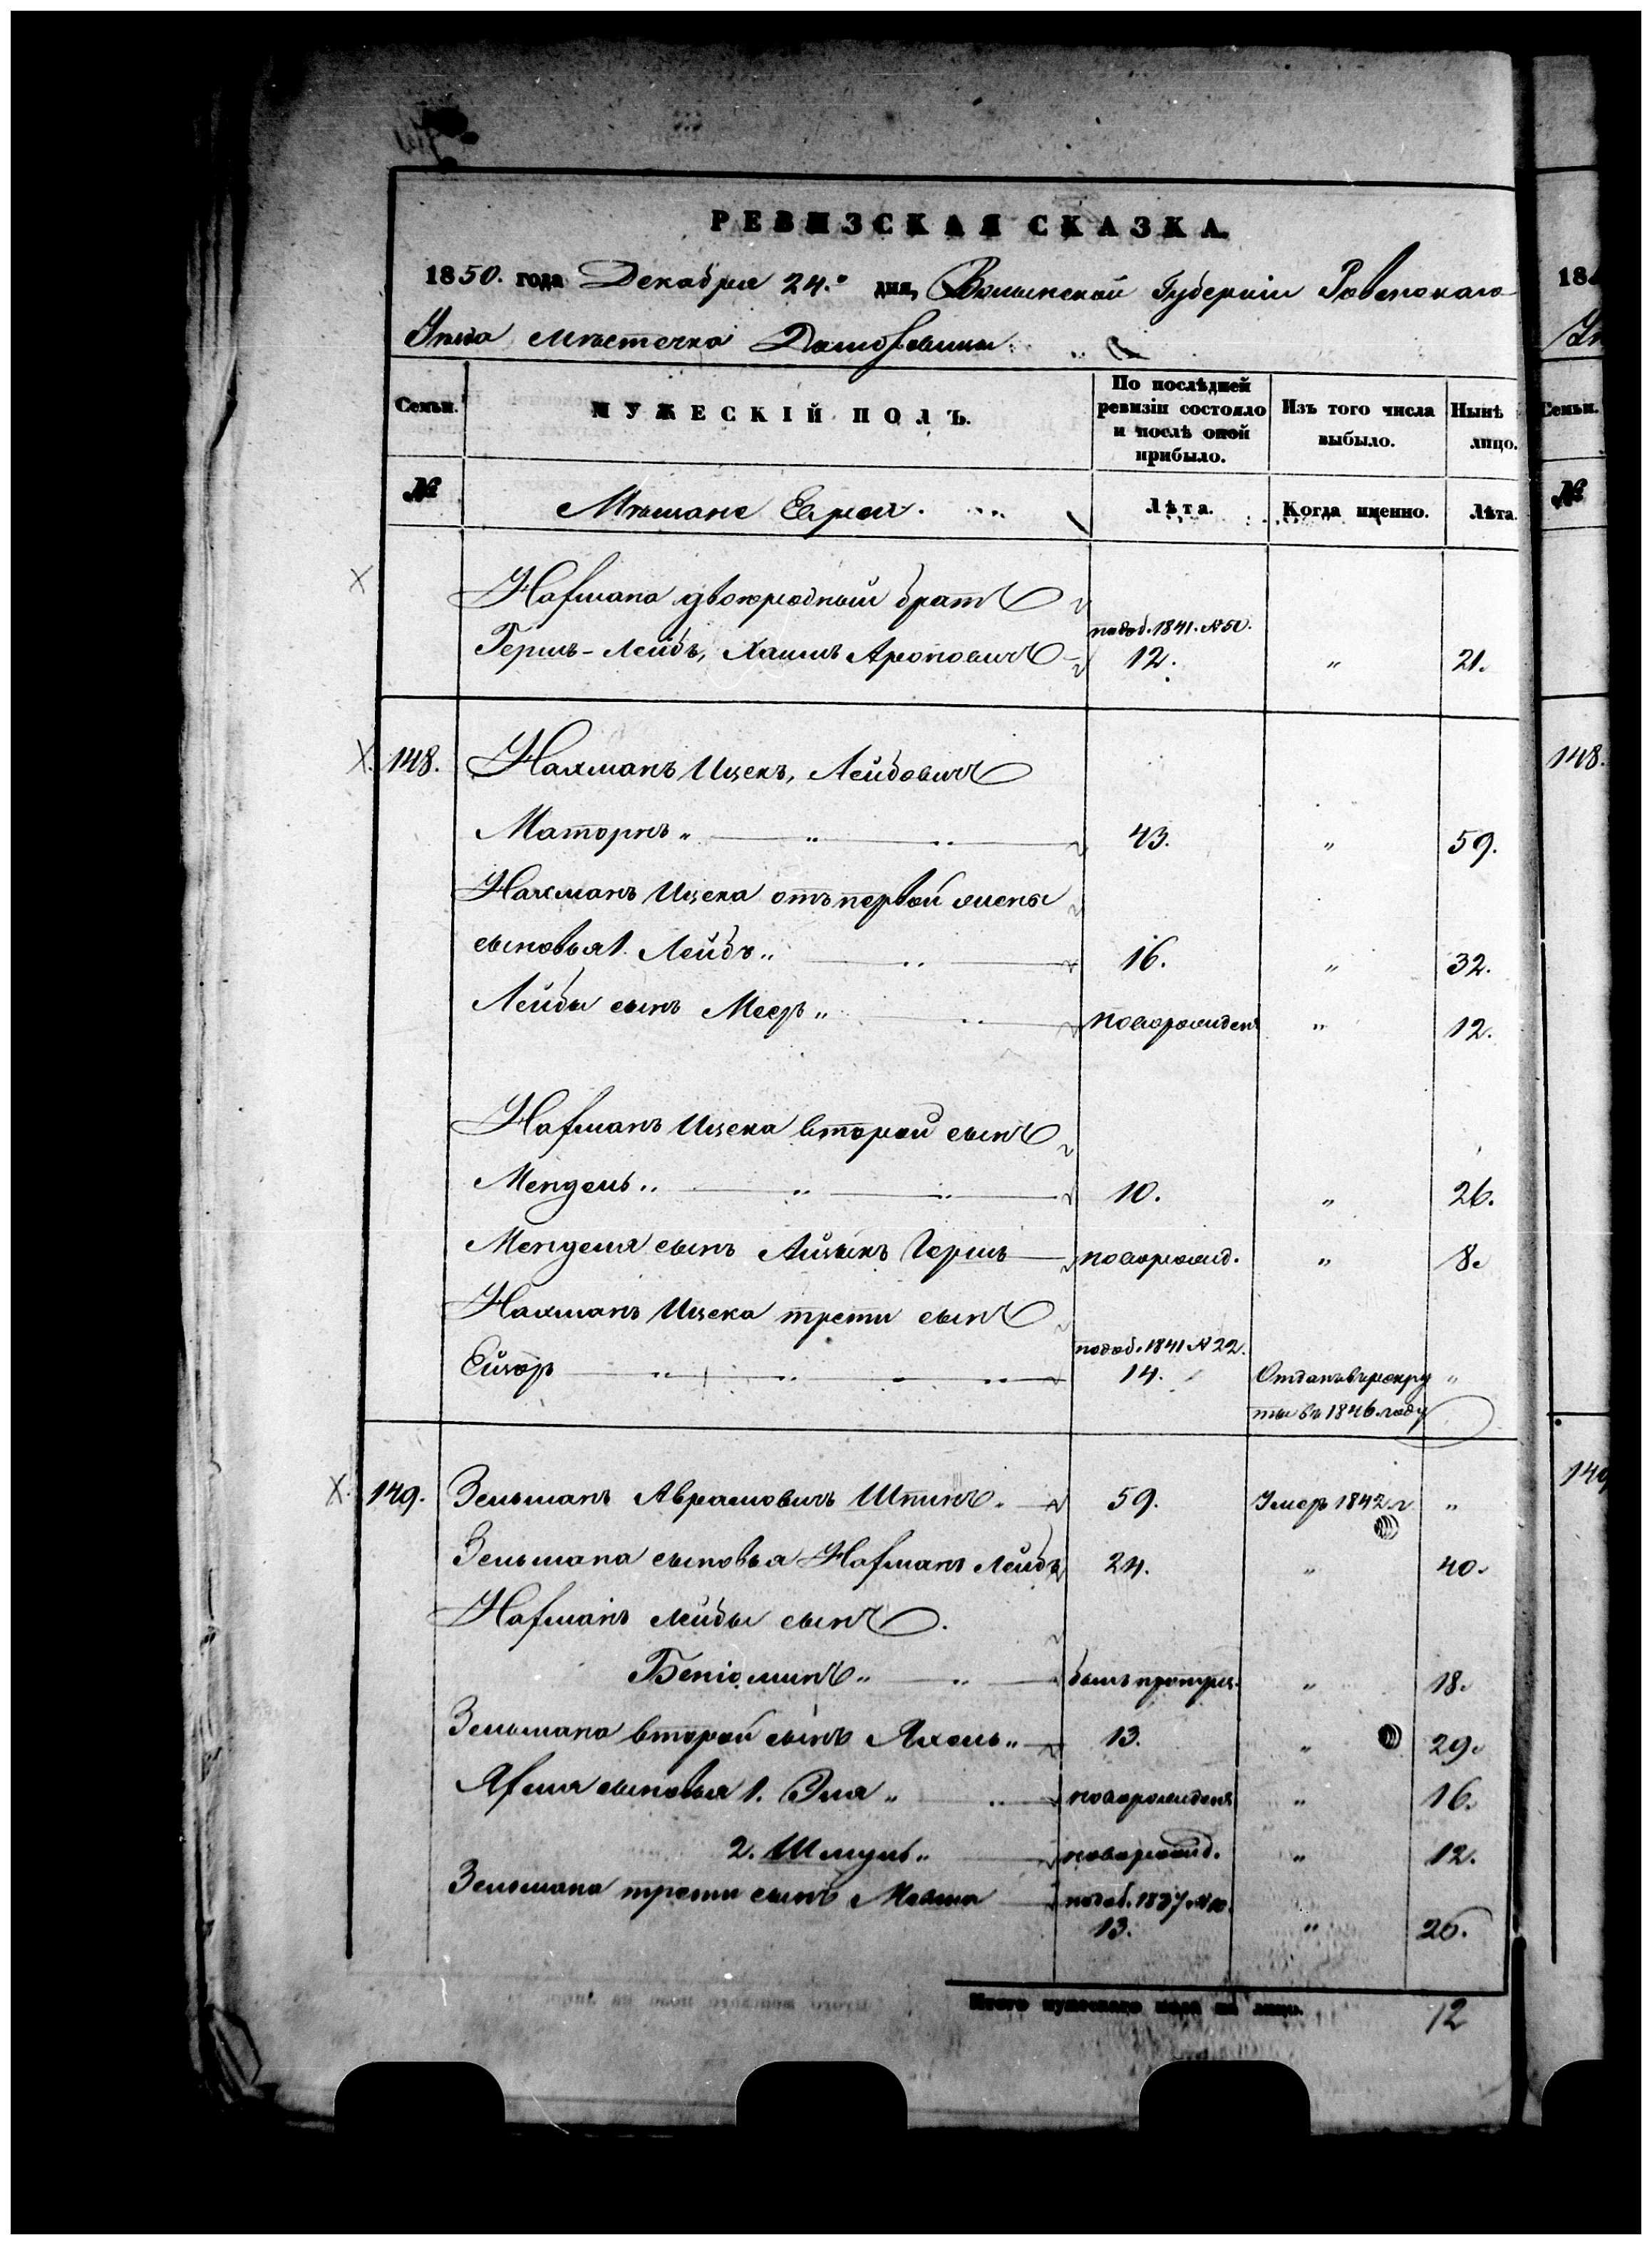 РЕВИЗСКАЯ СКАЗКА.
1850. года Декабря 24.го дня, Волынской Губерніи Ровенскаго
Уѣзда мѣстечка
184
Семьи.
МУЖЕСКІЙ ПОЛЪ.
По послѣдней ревизіи состояло и послѣ оной прибыло.
Изъ того числа выбыло.
Нынѣ на лицо.
Семьи.
№
Мѣщане Евреи.
Лѣта.
Когда именно.
Лѣта.
№
Нахмана двоюродный братъ
Гершъ-Лейбъ, Хаимъ Ароновичъ 12. " 21.
1841.
148. Нахманъ Ицекъ, Лейбовичъ
Маторнъ " " " 43. " 59.
Нахманъ Ицека отъ первой жены
сыновья 1. Лейбъ " " 16. " 32.
Лейбы сынъ Мееръ " " новорожденъ " 12.
148.
Нахманъ Ицека второй сынъ
Мендель " " " 10. " 26.
Менделя сынъ Айзыкъ Гершъ новорожд. " 8.
Нахманъ Ицека трети сынъ
1841 № 22.
Ейзоръ " " " " 14. Отданъ въ рекру "
ты въ 1846 году
149. Зельманъ Аврамовичъ Шпинъ. 59. Умеръ 1842 г. "
Зельмана сыновья Нахманъ Лейбъ 24. " 40.
Нахманъ Лейбы сынъ.
Беніоминъ " " былъ " 18.
Зельмана второй сынъ Яхель " 13. " 29.
Яхеля сыновья 1. Эля " " новорожденъ " 16.
2. Шмуль " новорожд. " 12.
Зельмана трети сынъ 1837 № 10.
13. " 26.
149
Итого мужескаго пола на лицо. 12